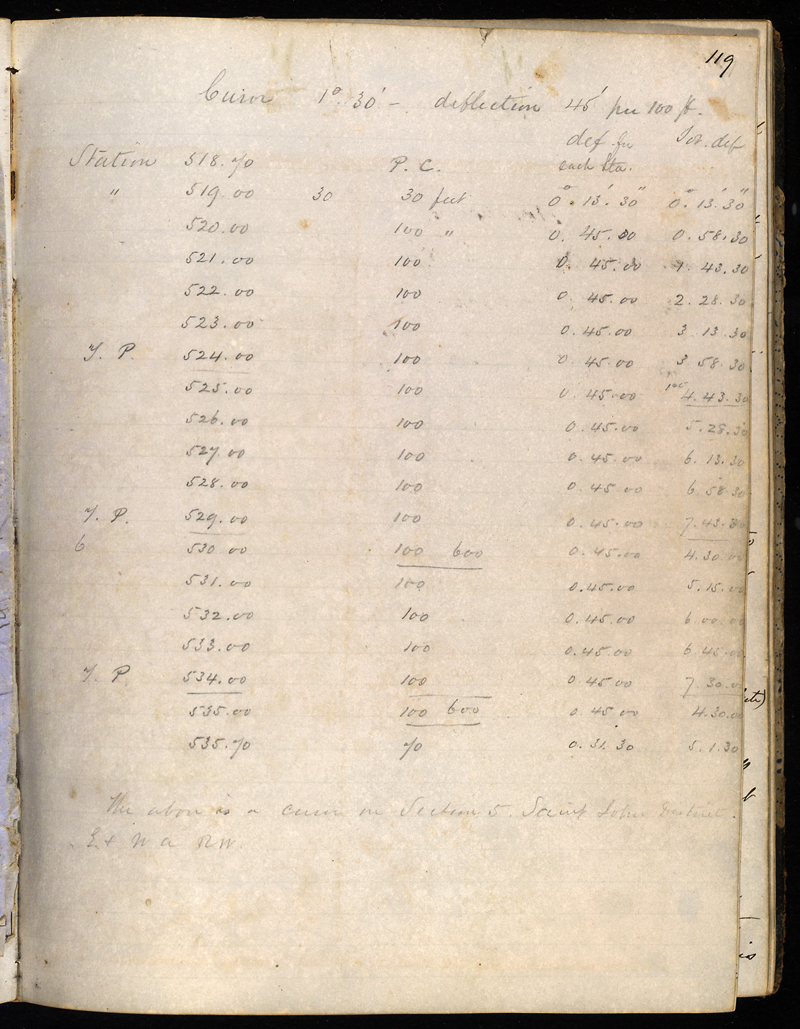 119
Curve 1° 30' - deflection 45' per 100 ft.
def. for Tot. def
Station 518.70 P. C. each Sta.
" 519.00 30 30 feet 0°. 13'. 30" 0°. 13'. 30"
520.00 100 " 0. 45. 00 0. 58. 30
521.00 100 0. 45. 00 1. 43. 30
522.00 100 0. 45. 00 2. 28. 30
523.00 100 0. 45. 00 3. 13. 30
T. P. 524.00 100 0. 45. 00 3 58. 30
525.00 100 0. 45. 00 4. 43. 30
526.00 100 0. 45. 00 5. 28. 30
527.00 100 0. 45. 00 6. 13. 30
528.00 100 0. 45 00 6 58 30
T. P. 529.00 100 0. 45. 00 7. 43. 30
6 530 00 100 600 0. 45. 00 4. 30. 00
531.00 100 0. 45. 00 5. 15. 00
532.00 100 0. 45. 00 6. 00. 00
533.00 100 0. 45. 00 6 45. 00
T. P. 534.00 100 0. 45 00 7 30. 00
535.00 100 600 0. 45 00 4. 30. 00
535.70 70 0. 31. 30 5. 1. 30
The above is a curve on Section 5. Saint John District.
E & N A RW.